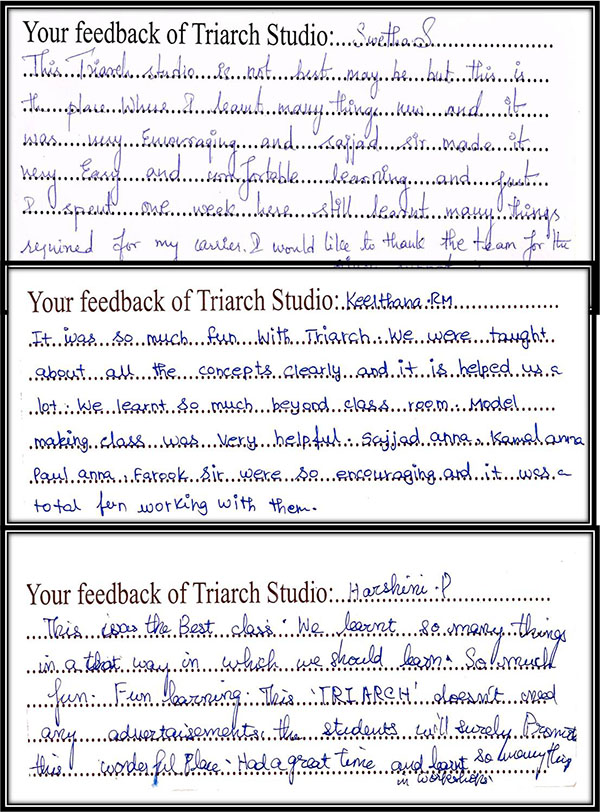 Your feedback of Triarch Studio: Swetha S
This Triarch studio is not best may be but this is
the place where I learnt many things new and it
was very Encouraging and sajjad sir made it
very Easy and comfortable learning and just
I spent one week here still learnt many things
required for my carrier. I would like to thank the team for the
Your feedback of Triarch Studio: Keerthana.RM
It was so much fun with Triarch. We were taught
about all the concepts clearly and it is helped us a
lot. We learnt so much beyond class room. Model
making class was very helpful. Sajjad anna. Kamal anna
Paul anna. Farook sir were so encouraging and it was a
total fun working with them.
Your feedback of Triarch Studio: Harshini.P
This is was the Best class. We learnt so many things
in a that way in which we should learn. So much
fun. Fun learning. This 'TRIARCH' doesn't need
any advertaisements. the students will surely Promote
this wonderful Place. Had a great time and learnt so many thing
in workshop.